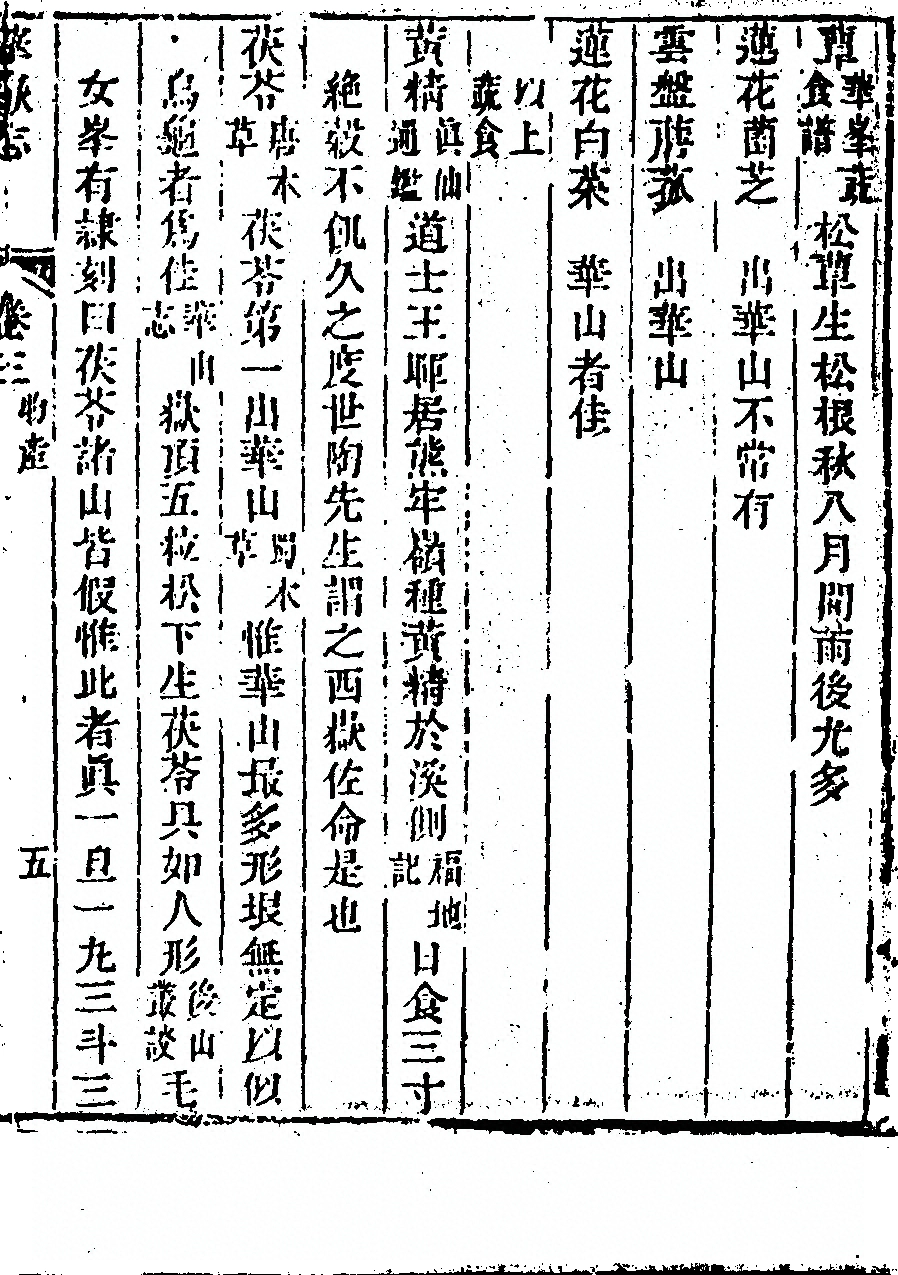 蕈華峯蔬食譜松蕈生松根秋八月間雨後尤多
蓮花菌芝　出華山不常有
雲盤蘑菰　出華山
蓮花白菜　華山者佳
以上蔬食
黃精眞仙通鑑道士王耶居熊牢嶺種黃精於溪側福地記日食三寸
絶穀不飢久之度世陶先生謂之西嶽佐命是也
茯苓唐本草茯苓第一出華山蜀本草惟華山最多形垠無定以似
烏龜者爲佳華山志嶽頂五粒松下生茯苓具如人形後山叢談毛
女峯有隷刻曰茯苓諸山皆假惟此者眞一旦一九三斗三
卷三
物產
五